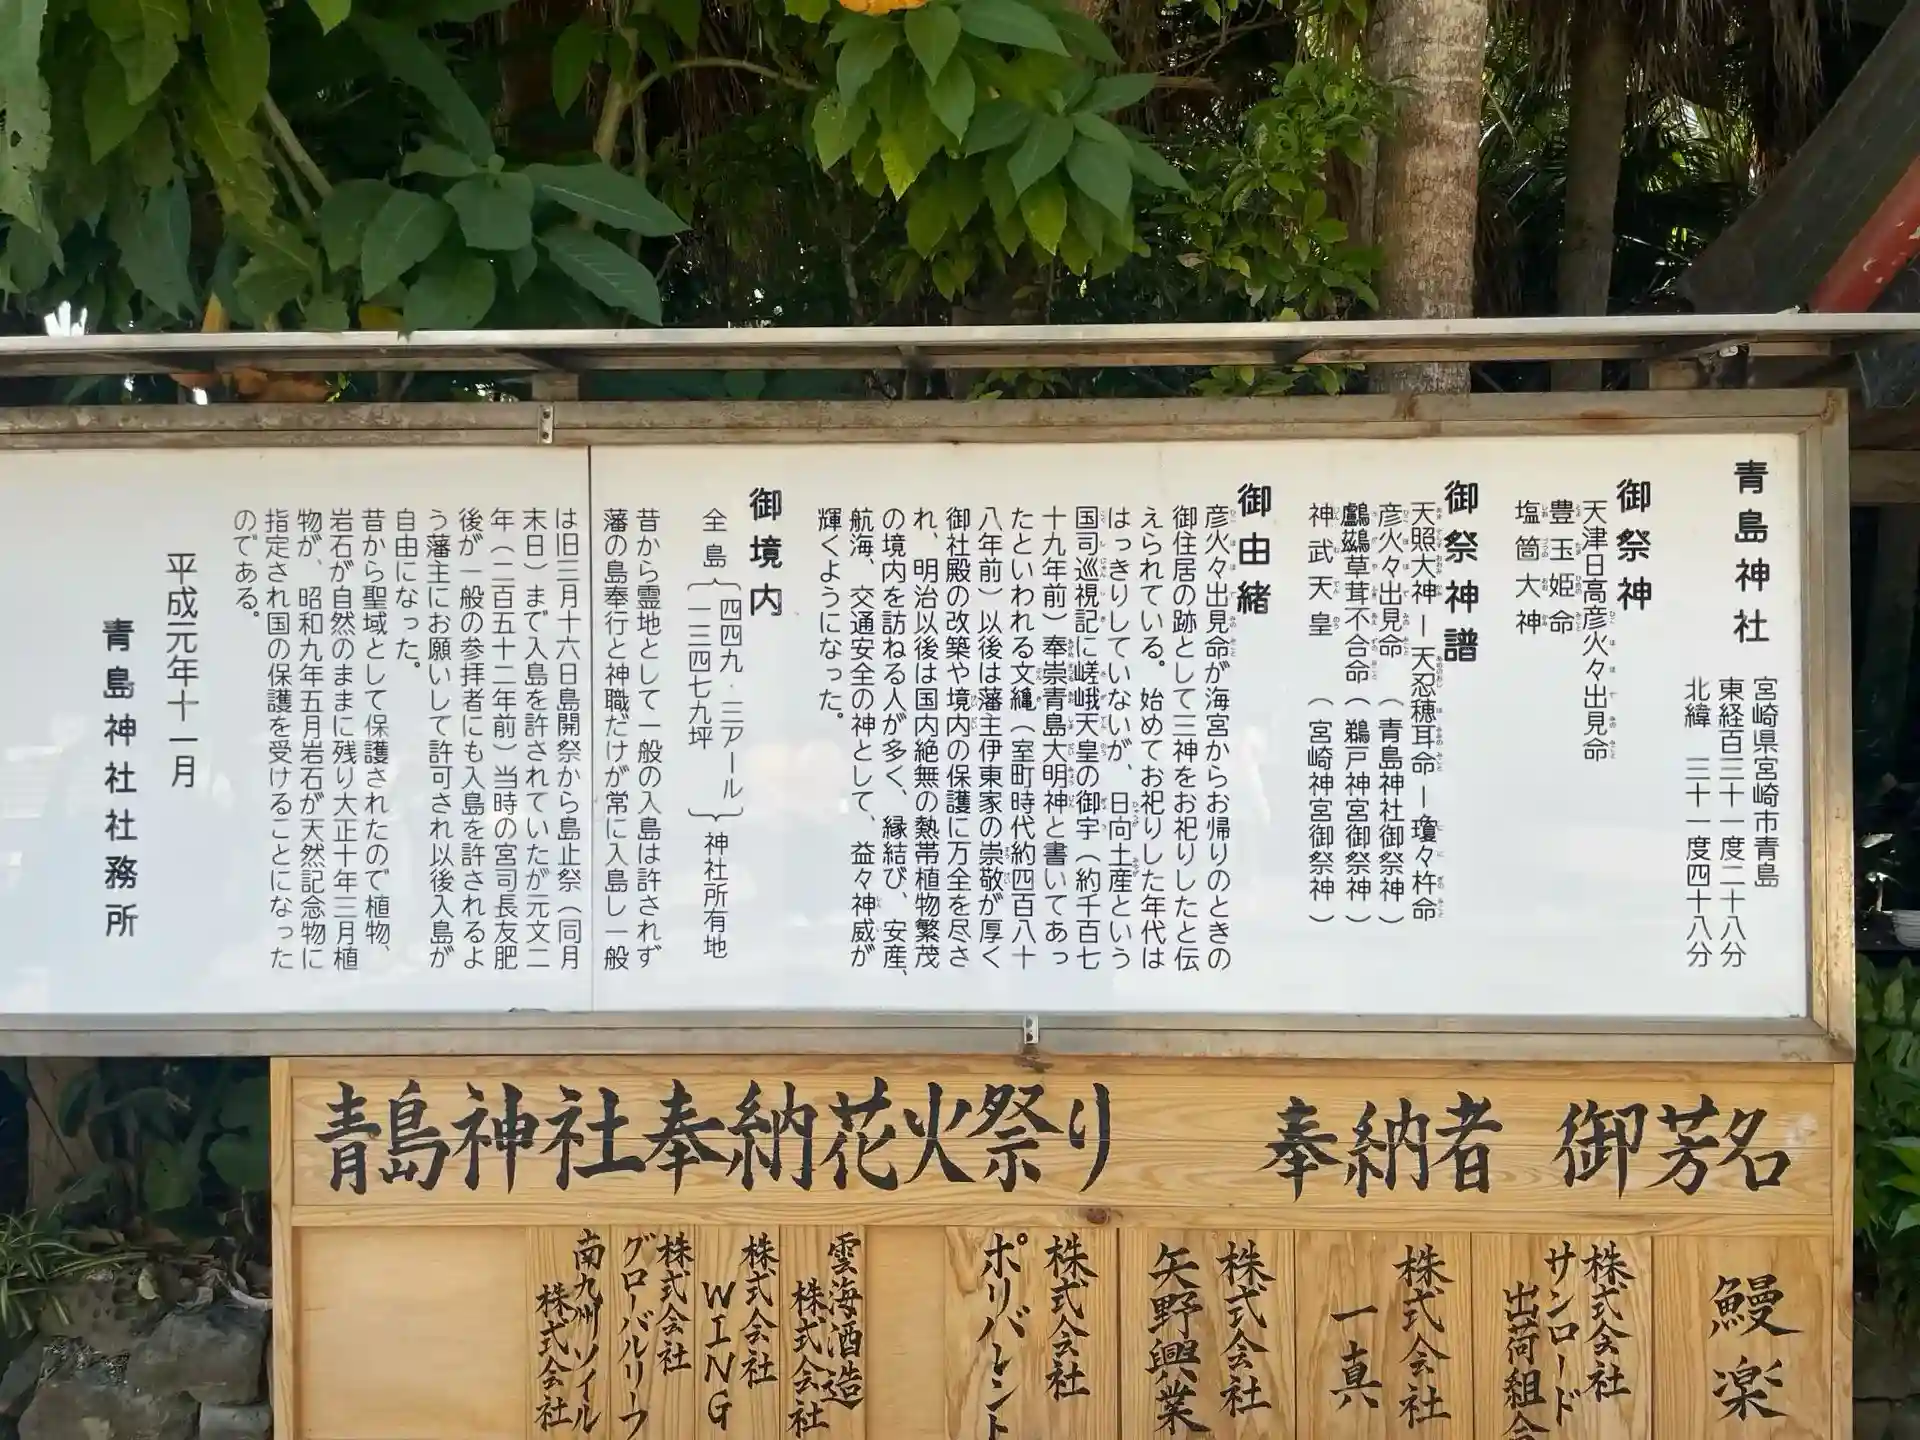 青島神社
宮崎県宮崎市青島
東経百三十一度二十八分
北緯 三十一度四十八分
御祭神
天津日高彦火々出見命
豊玉姫命
塩筒大神
御祭神譜
天照大神ー天忍穂耳命ー瓊々杵命
彦火々出見命(青島神社御祭神)
鸕鷀草葺不合命(鵜戸神宮御祭神)
神武天皇 (宮崎神宮御祭神)
御由緒
彦火々出見命が海宮からお帰りのときの
御住居の跡として三神をお祀りしたと伝
えられている。始めてお祀りした年代は
はっきりしていないが、日向土産という
国司巡視記に嵯峨天皇の御宇(約千百七
十九年前)奉崇青島大明神と書いてあっ
たといわれる文亀(室町時代約四百八十
八年前)以後は藩主伊東家の崇敬が厚く
御社殿の改築や境内の保護に万全を尽さ
れ、明治以後は国内絶無の熱帯植物繁茂
の境内を訪ねる人が多く、縁結び、安産、
航海、交通安全の神として、益々神威が
輝くようになった。
御境内
全島
四四九・三アール
一三四七九坪
神社所有地
昔から霊地として一般の入島は許されず
藩の島奉行と神職だけが常に入島し一般
は旧三月十六日島開祭から島止祭(同月
末日)まで入島を許されていたが元文二
年(二百五十二年前)当時の宮司長友肥
後が一般の参拝者にも入島を許されるよ
う藩主にお願いして許可され以後入島が
自由になった。
昔から聖域として保護されたので植物、
岩石が自然のままに残り大正十年三月植
物が、昭和九年五月岩石が天然記念物に
指定され国の保護を受けることになった
のである。
平成元年十一月
青島神社社務所
青島神社奉納花火祭り 奉納者 御芳名
鰻楽
株式会社
サンロード
出荷組合
株式会社
一真
株式会社
矢野興業
株式会社
ポリバレント
雲海酒造
株式会社
株式会社
WING
株式会社
グローバルリーフ
南九州ソイル
株式会社